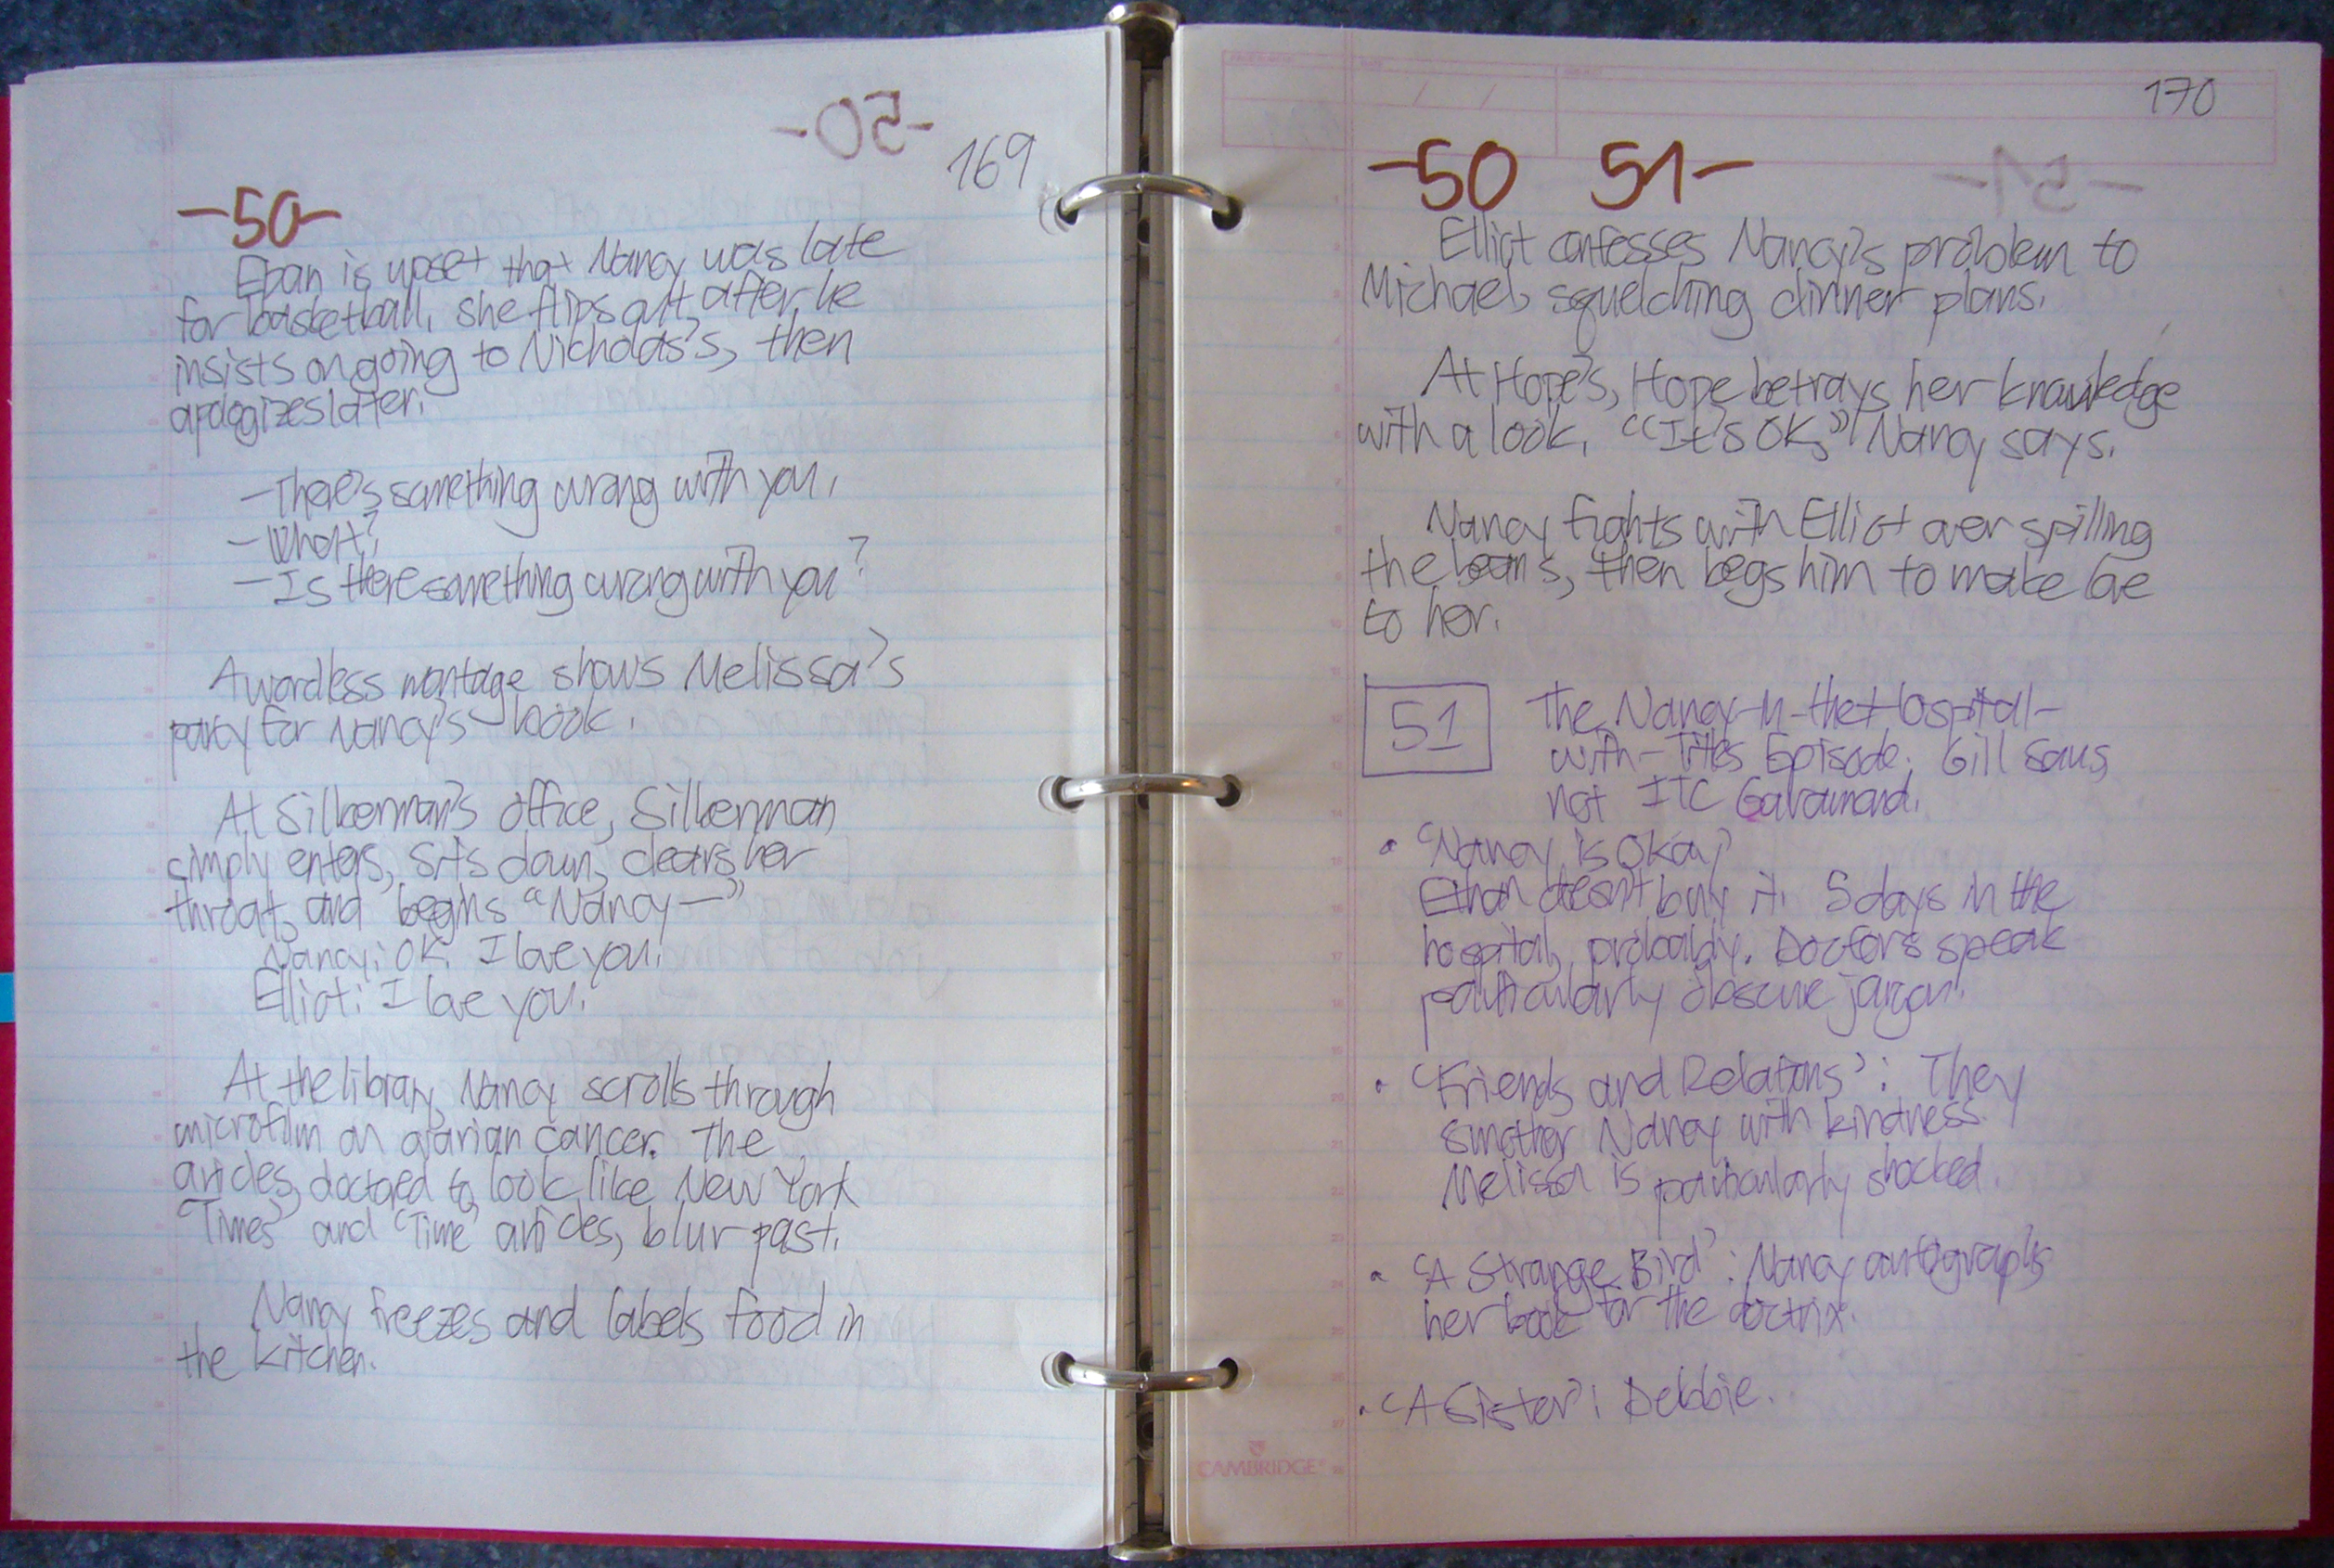 169
-50-
Ethan is upset that Nancy was late
for basketball, she flips out after he
insists on going to Nicholas's, then
apologizes later.
—There's something wrong with you.
—What?
—Is there something wrong with you?
A wordless montage shows Melissa's
party for Nancy's book.
At Silberman's office, Silberman
simply enters, sits down, clears her
throat, and begins “Nancy—”
Nancy: OK. I love you.
Elliot: I love you.
At the library, Nancy scrolls through
microfilm on ovarian cancer. The
articles, doctored to look like New York
‘Times’ and ‘Time’ articles, blur past.
Nancy freezes and labels food in
the kitchen.
170
-50 51-
Elliot confesses Nancy's problem to
Michael, squelching dinner plans.
At Hope's, Hope betrays her knowledge
with a look. “It's OK,” Nancy says.
Nancy fights with Elliot over spilling
the beans, then begs him to make love
to her.
51 The Nancy-in-the-Hospital-
with-Titles Episode. Gill Sans,
not ITC Garamond.
• ‘Nancy is Okay’
Ethan doesn't buy it. 5 days in the
hospital, probably. Doctors speak
particularly obscure jargon.
• ‘Friends and Relations’: They
smother Nancy with kindness.
Melissa is particularly shocked.
• ‘A Strange Bird’: Nancy autographs
her book for the doctrix.
• ‘A Sister’: Debbie.
CAMBRIDGE